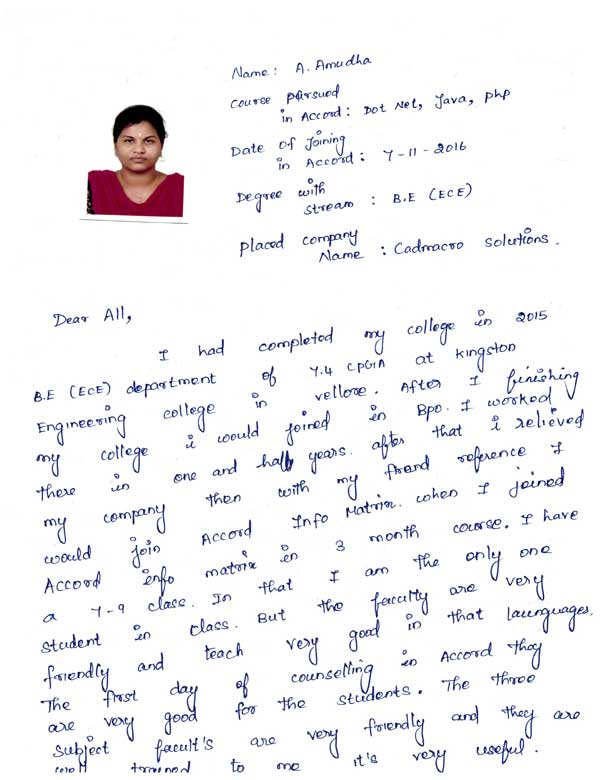 Name : A. Amudha
Course Pursued
in Accord : Dot Net, Java, php
Date of Joining
in Accord : 7-11-2016
Degree with
Stream : B.E (ECE)
Placed Company
Name : Cadmacro Solutions.
Dear All,
I had completed my college in 2015
B.E (ECE) department of 7.4 CPGA at Kingston
Engineering college in vellore. After I finishing
my college i would joined in Bpo. I worked
there in one and half years. after that i relieved
my company then with my friend reference I
would join Accord Info Matrix. when I joined
Accord info matrix in 3 month course. I have
a 7-9 class. In that I am the only one
student in class. But the faculty are very
friendly and teach very good in that launguages.
The first day of counselling in Accord they
are very good for the students. The three
subject facult's are very friendly and they are
well trained to me it's very useful.